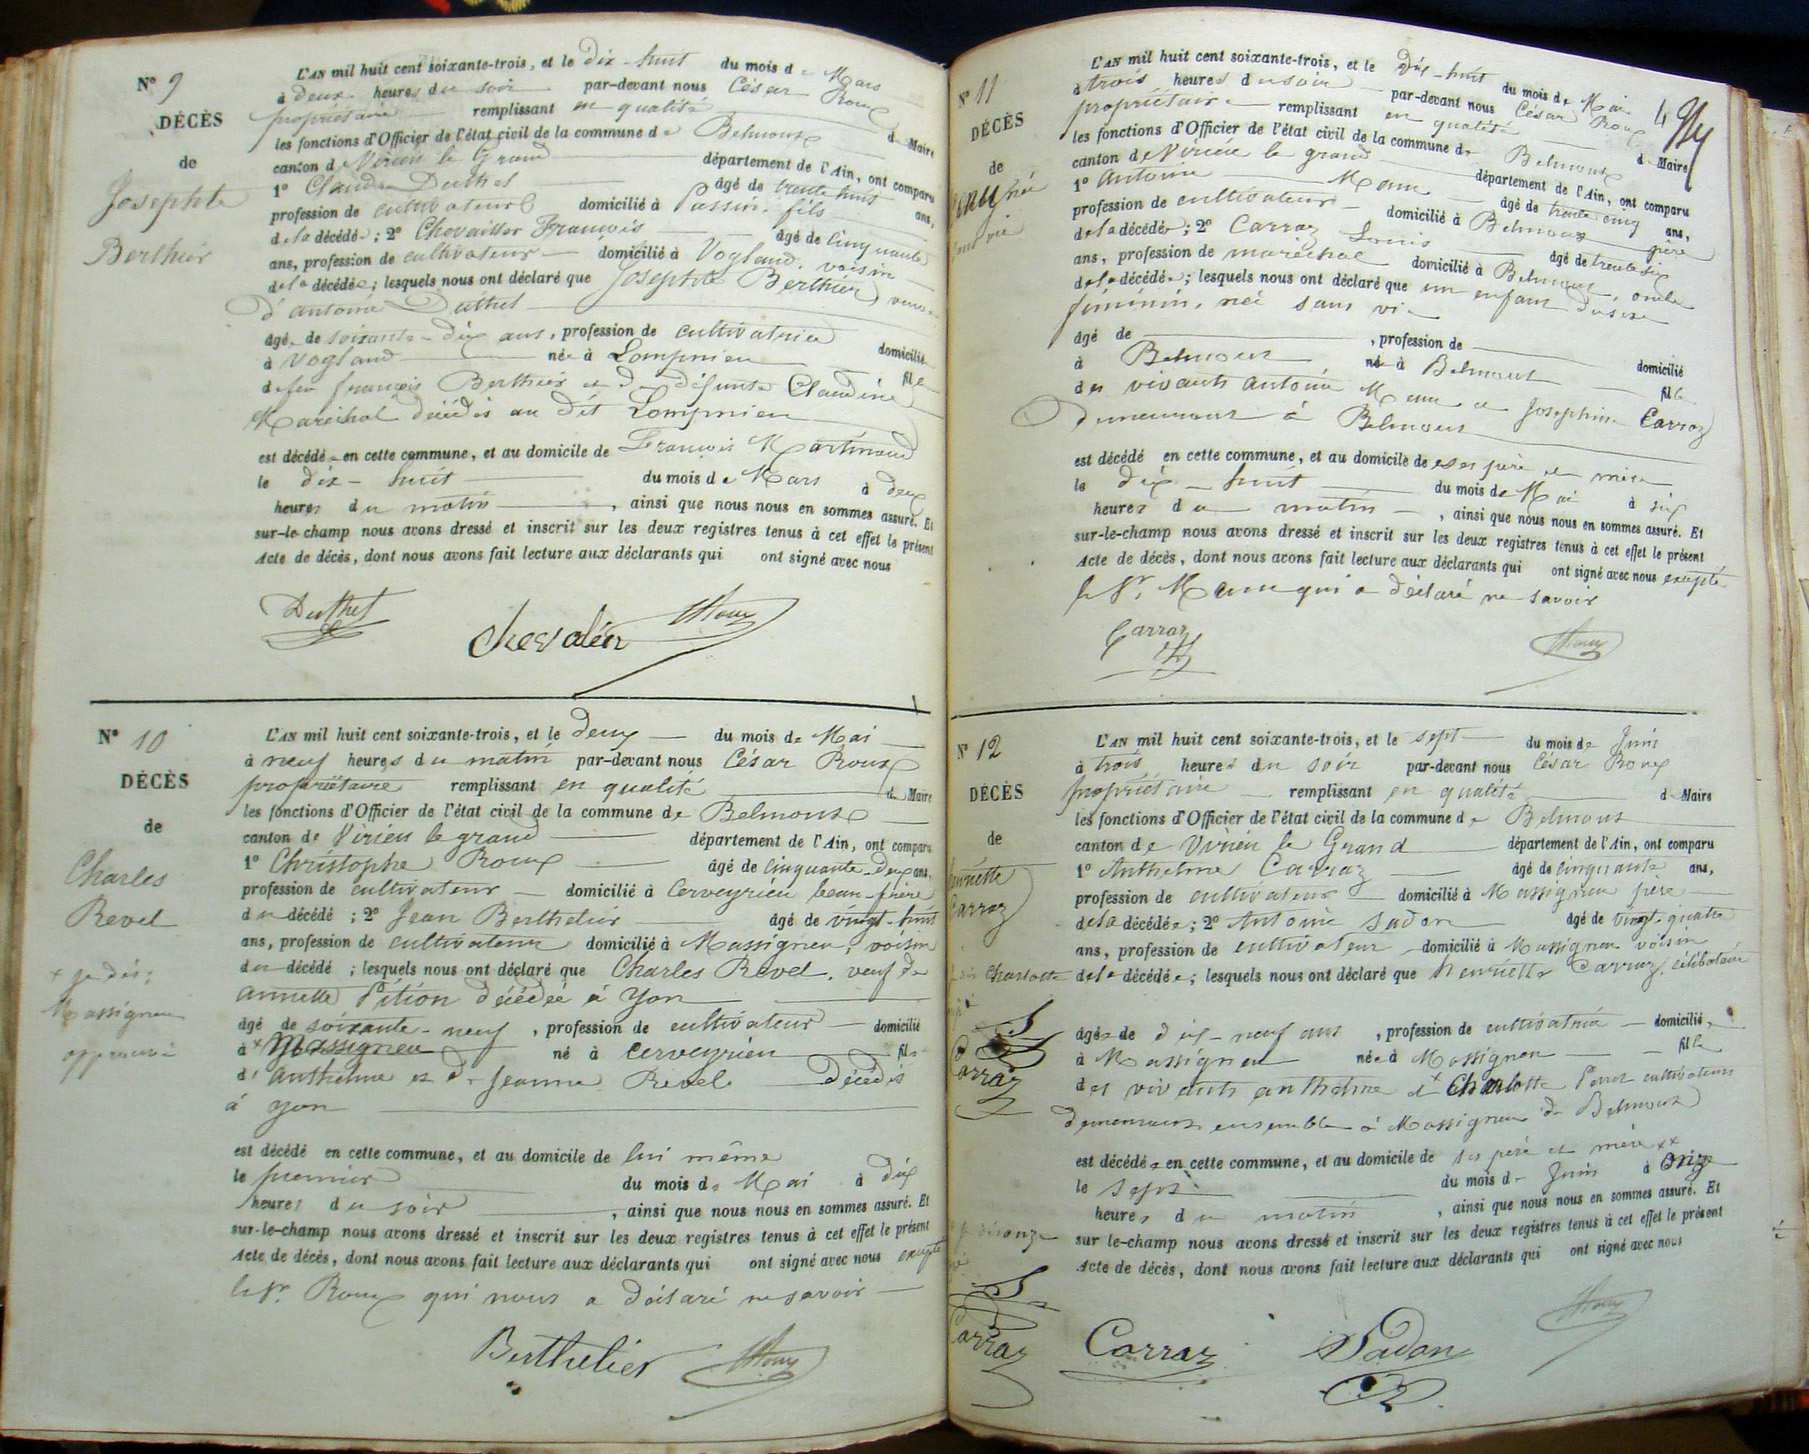 N° 9
DÉCÈS
de
Josephte
Berthier
L'AN mil huit cent soixante-trois, et le dix-huit du mois de Mars
à deux heures du soir par-devant nous César Roux
propriétaire remplissant en qualité de Maire
les fonctions d'Officier de l'état civil de la commune de Belmont
canton de Virieu le Grand département de l'Ain, ont comparu
1° Claude Duthel âgé de trente huit ans,
profession de cultivateur domicilié à Passin fils
de la décédée; 2° Chevailler François âgé de cinquante
ans, profession de cultivateur domicilié à Vogland, voisin
de la décédée; lesquels nous ont déclaré que Josephte Berthier veuve
d'antoine Duthel
âgée de soixante-dix ans, profession de cultivatrice domiciliée
à Vogland née à Lompnieu fille
de feu françois Berthier et de défunte Claudine
Maréchal décédés au dit Lompnieu
est décédée en cette commune, et au domicile de François Martinaud
le dix-huit du mois de Mars à deux
heures du matin, ainsi que nous nous en sommes assuré. Et
sur-le-champ nous avons dressé et inscrit sur les deux registres tenus à cet effet le présent
Acte de décès, dont nous avons fait lecture aux déclarants qui ont signé avec nous
Duthel Chevalier Roux
N° 10
DÉCÈS
de
Charles
Revel
x je dis:
Massignieu
approuvé
L'AN mil huit cent soixante-trois, et le deux du mois de Mai
à neuf heures du matin par-devant nous César Roux
propriétaire remplissant en qualité de Maire
les fonctions d'Officier de l'état civil de la commune de Belmont
canton de Virieu le grand département de l'Ain, ont comparu
1° Christophe Roux âgé de cinquante-deux ans,
profession de cultivateur domicilié à Cerveyrieu beau-frère
du décédé; 2° Jean Berthelier âgé de vingt-huit
ans, profession de cultivateur domicilié à Massignieu, voisin
du décédé; lesquels nous ont déclaré que Charles Revel, veuf de
annette Pétion décédée à Yon
âgé de soixante-neuf, profession de cultivateur domicilié
à x Massignieu né à Cerveyrieu fils
d'Anthelme et de Jeanne Revel décédés
à yon
est décédé en cette commune, et au domicile de lui même
le premier du mois de Mai à dix
heures du soir, ainsi que nous nous en sommes assuré. Et
sur-le-champ nous avons dressé et inscrit sur les deux registres tenus à cet effet le présent
Acte de décès, dont nous avons fait lecture aux déclarants qui ont signé avec nous excepté
le Sr. Roux qui nous a déclaré ne savoir
Berthelier Roux
N° 11
DÉCÈS
de
née
sans vie
L'AN mil huit cent soixante-trois, et le dix-huit du mois de Mai
à trois heures du soir par-devant nous César Roux
propriétaire remplissant en qualité de Maire
les fonctions d'Officier de l'état civil de la commune de Belmont
canton de Virieu le grand département de l'Ain, ont comparu
1° Antoine âgé de trente cinq ans,
profession de cultivateur domicilié à Belmont père
de la décédée; 2° Carraz Louis âgé de trente six
ans, profession de maréchal domicilié à Belmont, oncle
de la décédée; lesquels nous ont déclaré que un enfant du sexe
féminin, née sans vie
âgé de , profession de domicilié
à Belmont né à Belmont fille
des vivants antoine et Josephine Carraz
demeurant à Belmont
est décédé en cette commune, et au domicile de ses père et mère
le dix-huit du mois de Mai à six
heures du matin, ainsi que nous nous en sommes assuré. Et
sur-le-champ nous avons dressé et inscrit sur les deux registres tenus à cet effet le présent
Acte de décès, dont nous avons fait lecture aux déclarants qui ont signé avec nous excepté
le Sr. qui a déclaré ne savoir
Carraz Roux
N° 12
DÉCÈS
de
Henriette
Carraz
Charlotte
Carraz
onze
Carraz
L'AN mil huit cent soixante-trois, et le sept du mois de Juin
à trois heures du soir par-devant nous César Roux
propriétaire remplissant en qualité de Maire
les fonctions d'Officier de l'état civil de la commune de Belmont
canton de Virieu le Grand département de l'Ain, ont comparu
1° Anthelme Carraz âgé de cinquante ans,
profession de cultivateur domicilié à Massignieu père
de la décédée; 2° Antoine Sadon âgé de vingt-quatre
ans, profession de cultivateur domicilié à Massignieu voisin
de la décédée; lesquels nous ont déclaré que Henriette Carraz, célibataire
âgée de dix-neuf ans, profession de cultivatrice domiciliée
à Massignieu née à Massignieu fille
des vivants anthelme et x Charlotte Perret cultivateurs
demeurant ensemble à Massignieu de Belmont
est décédée en cette commune, et au domicile de ses père et mère xx
le sept du mois de Juin à onze
heures du matin, ainsi que nous nous en sommes assuré. Et
sur-le-champ nous avons dressé et inscrit sur les deux registres tenus à cet effet le présent
Acte de décès, dont nous avons fait lecture aux déclarants qui ont signé avec nous
Carraz Sadon Roux